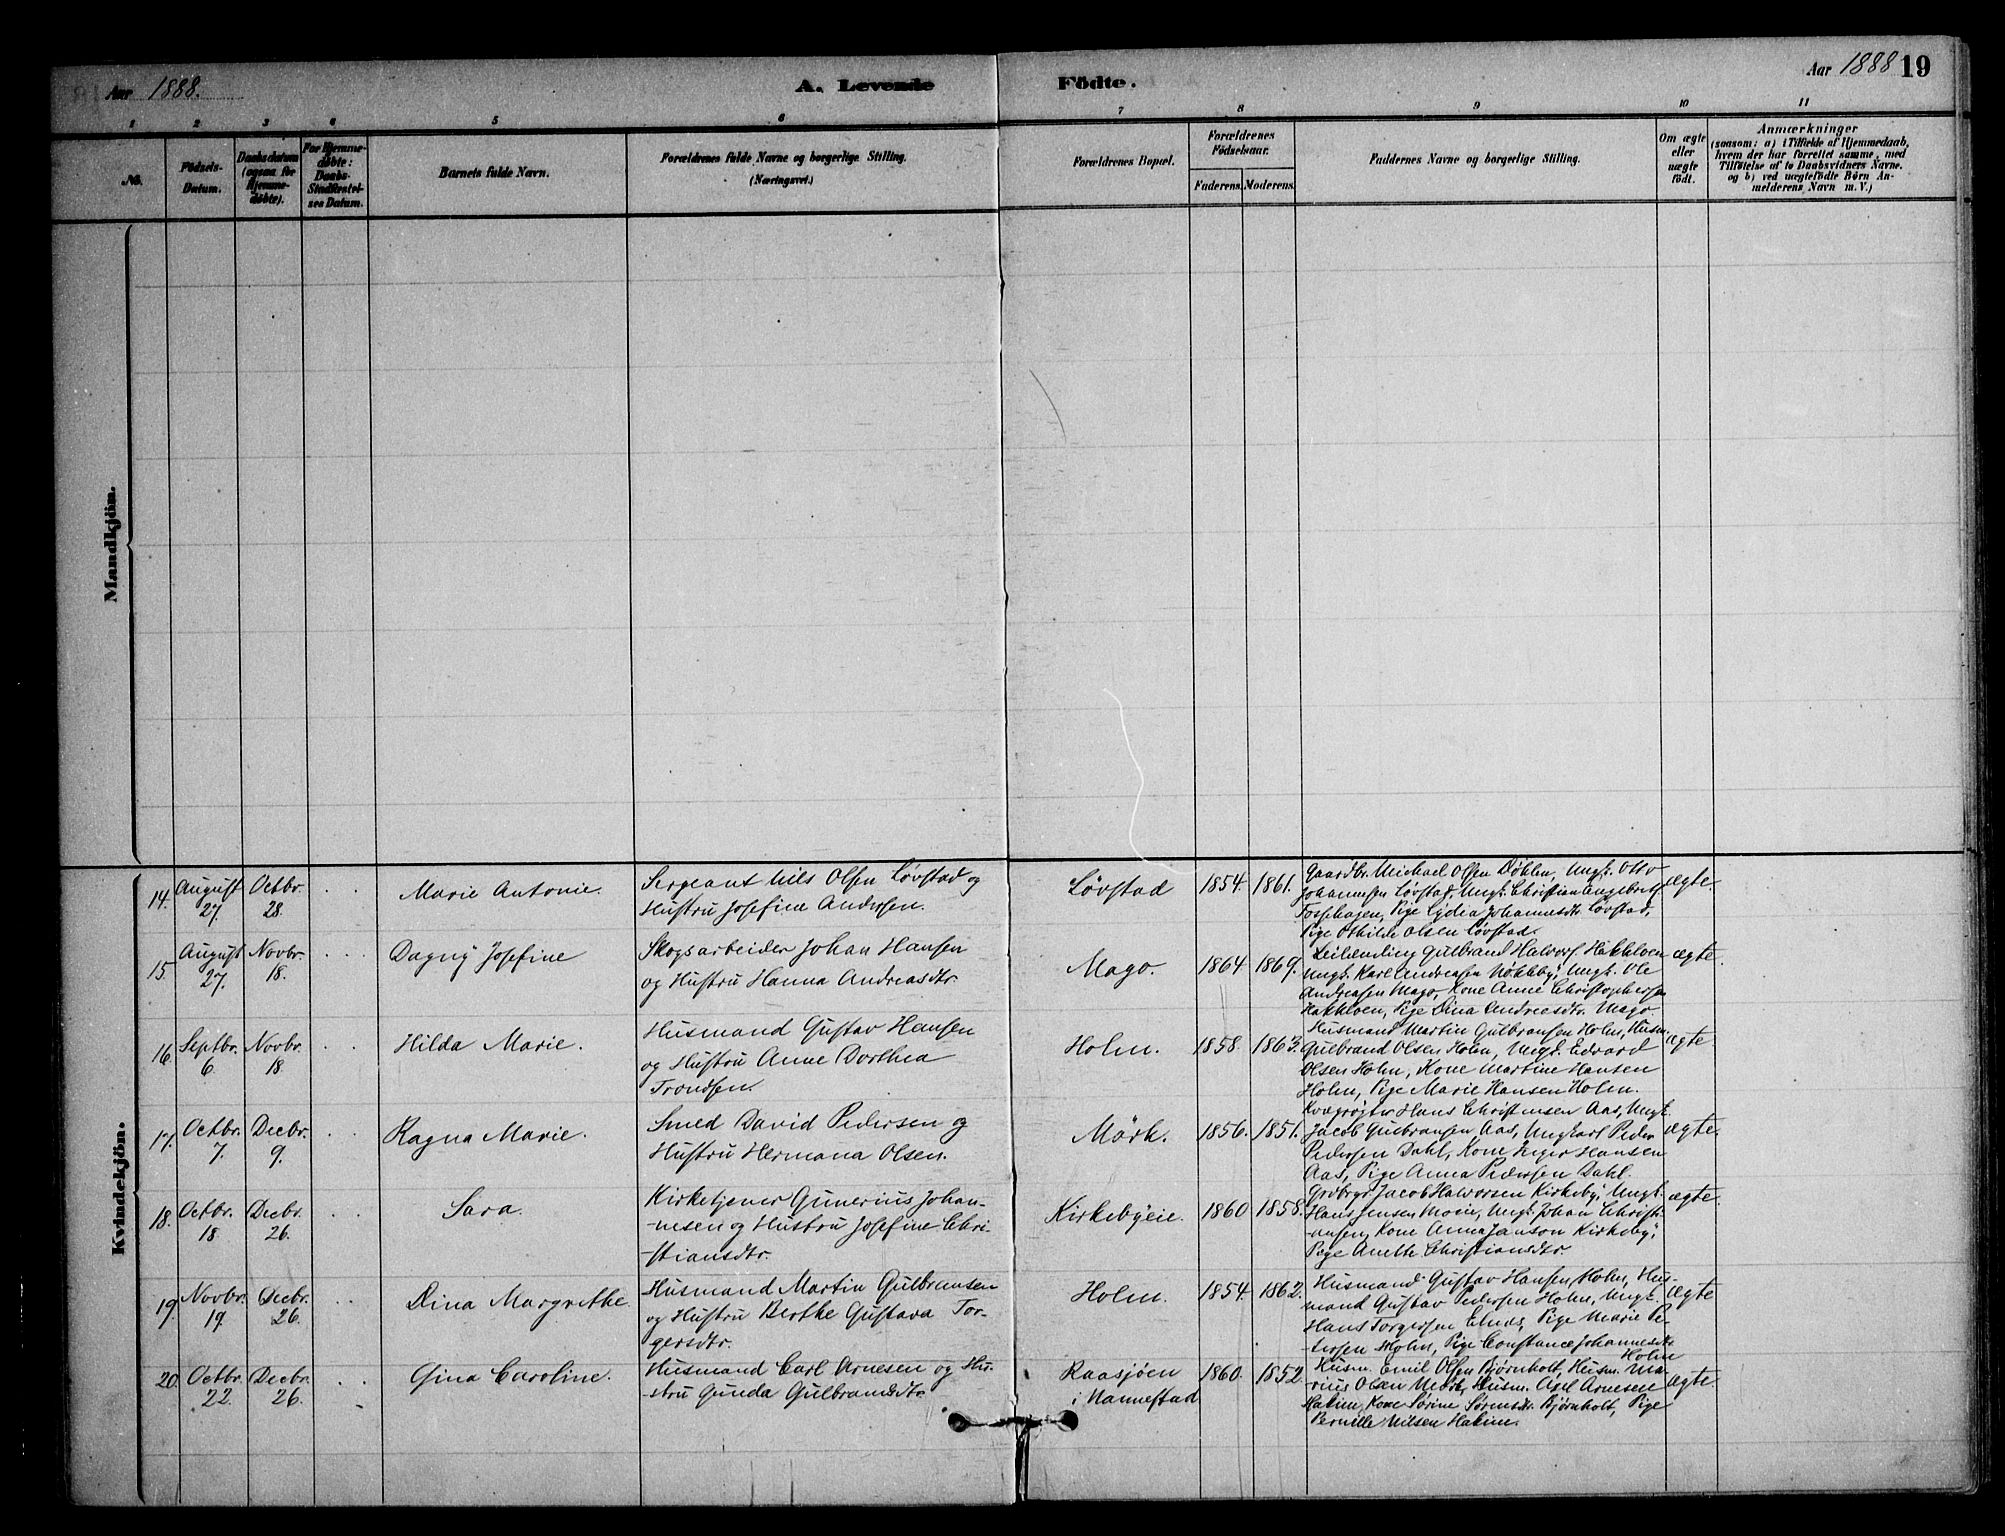 Aar 1888.
A. Levende Födte.
Aar 1888 19
1 2 3 4 5 6 7 8 9 10 11
No.
Födsels-
Datum.
Daabsdatum
(ogsaa for
Hjemme-
döbte).
For Hjemme-
døbte:
Daabs-
Stadfæstel-
ses Datum.
Barnets fulde Navn.
Forældrenes fulde Navne og borgerlige Stilling.
(Næringsvei.)
Forældrenes Bopæl.
Forældrenes
Födselsaar.
Faderens. Moderens.
Faddernes Navne og borgerlige Stilling.
Om ægte
eller
uægte
födt.
Anmærkninger
(saasom: a) i Tilfælde af Hjemmedaab,
hvem der har forrettet samme, med
Tilföielse af to Daabsvidners Navne.
og b) ved uægtefödte Börn An-
melderens Navn m. V.)
Mandkjön.
Kvindekjön.
14. August 27. Octbr. 28. Marie Antonie.
Sergeant Nils Olsen Løvstad og
Hustru Josefine Andersen.
Løvstad 1854. 1861.
Gaardbr. Michael Olsen Døhlen, Ungk. Otto
Johannesen Løvstad, Ungk. Christian Engebrets.
Tosshagen, Pige Lydia Johannesdtr. Løvstad,
Pige Othilde Olsen Løvstad.
ægte.
15. August 27. Novbr. 18. Dagny Josefine
Skogsarbeider Johan Hansen
og Hustru Hanna Andreasdtr.
Mago. 1864 1869.
Leilænding Gulbrand Halvors. Hakkloen
Ungk. Karl Andreasen Nökleby, Ungk. Ole
Andreasen Mago, Kone Anne Christophersen
Hakkloen, Pige Dina Andreasdtr. Mago.
ægte.
16. Septbr. 6. Novbr. 18. Hilda Marie.
Husmand Gustav Hansen
og Hustru Anne Dorthea
Trondsen.
Holm. 1858. 1863.
Husmand Martin Gulbransen Holm, Husm.
Gulbrand Olsen Holm, Ungk. Edvard
Olsen Holm, Kone Martine Hansen
Holm, Pige Marie Hansen Holm.
ægte.
17. Octbr. 7. Decbr. 9. Ragna Marie.
Smed David Pedersen og
Hustru Hermana Olsen.
Mörk. 1856. 1851.
Kvægrøgter Hans Christensen Aas, Ungk.
Jacob Gulbransen Aas, Ungkarl Peder
Pedersen Dahl, Kone Inger Hansen
Aas, Pige Anna Pedersen Dahl.
ægte.
18. Octbr. 18 Decbr. 26. Sara.
Kirketjener Gunerius Johan-
-nesen og Hustru Josefine Chri-
-stiansdtr.
Kirkebyeie. 1860 1858.
Grdbrgr Jacob Halvorsen Kirkeby, Ungk.
Hans Jensen Moen, Ungk. Johan Christi-
-ansen, Kone Anna Janson Kirkeby,
Pige Anette Christiansdtr.
ægte.
19. Novbr. 19. Decbr. 26. Dina Margrethe
Husmand Martin Gulbransen
og Hustru Berthe Gustava Tor-
gersdtr.
Holm. 1854. 1862.
Husmand Gustav Hansen Holm, Hus-
mand Gustav Pedersen Holm, Ungk.
Hans Torgersen Elnes, Pige Marie Pe-
tersen Holm, Pige Constance Johannesdtr
Holm
ægte
20. Octbr. 22. Decbr. 26. Gina Caroline.
Husmand Carl Arnesen og Hu-
stru Gunda Gulbrandsdtr.
Raasjøen
i Nannestad
1860. 1852.
Husm. Emil Olsen Bjørnholt, Husm. Ma-
rius Olsen Mörk, Husm. Axel Arnesen
Hakim, Kone Sørine Sørensdtr. Bjørnholt, Pige
Pernille Nilsen Hakim.
ægte.